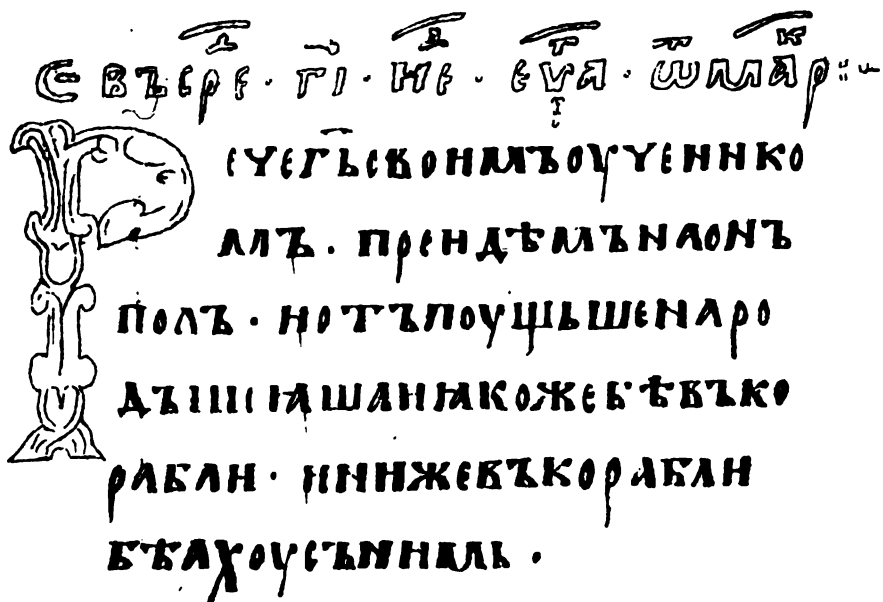 С въ сре᷏ · г҃і · не᷏ · еѵⷢ҇а · ѿ марⷦ҇ ::-
Рече г҃ь своимъ оученико
мъ · преидѣмъ на онъ
полъ · и отъпоущьше наро
дъі поꙗша и ꙗкоже бѣ въ ко
рабли · и ини же въ корабли
бѣахоу съ нимь ·